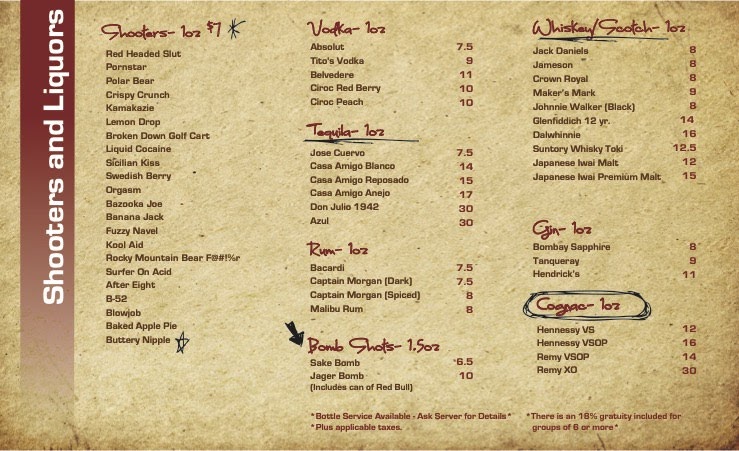 Shooters and Liquors
Shooters- 1oz $7
Red Headed Slut
Pornstar
Polar Bear
Crispy Crunch
Kamakazie
Lemon Drop
Broken Down Golf Cart
Liquid Cocaine
Sicilian Kiss
Swedish Berry
Orgasm
Bazooka Joe
Banana Jack
Fuzzy Navel
Kool Aid
Rocky Mountain Bear F@#!%r
Surfer On Acid
After Eight
B-52
Blowjob
Baked Apple Pie
Buttery Nipple
Vodka- 1oz
Absolut 7.5
Tito's Vodka 9
Belvedere 11
Ciroc Red Berry 10
Ciroc Peach 10
Tequila- 1oz
Jose Cuervo 7.5
Casa Amigo Blanco 14
Casa Amigo Reposado 15
Casa Amigo Anejo 17
Don Julio 1942 30
Azul 30
Rum- 1oz
Bacardi 7.5
Captain Morgan (Dark) 7.5
Captain Morgan (Spiced) 8
Malibu Rum 8
Bomb Shots- 1.5oz
Sake Bomb 6.5
Jager Bomb 10
(Includes can of Red Bull)
*Bottle Service Available - Ask Server for Details*
*Plus applicable taxes.
Whiskey/Scotch- 1oz
Jack Daniels 8
Jameson 8
Crown Royal 8
Maker's Mark 9
Johnnie Walker (Black) 8
Glenfiddich 12 yr. 14
Dalwhinnie 16
Suntory Whisky Toki 12.5
Japanese Iwai Malt 12
Japanese Iwai Premium Malt 15
Gin- 1oz
Bombay Sapphire 8
Tanqueray 9
Hendrick's 11
Cognac- 1oz
Hennessy VS 12
Hennessy VSOP 16
Remy VSOP 14
Remy XO 30
*There is an 18% gratuity included for
groups of 6 or more*